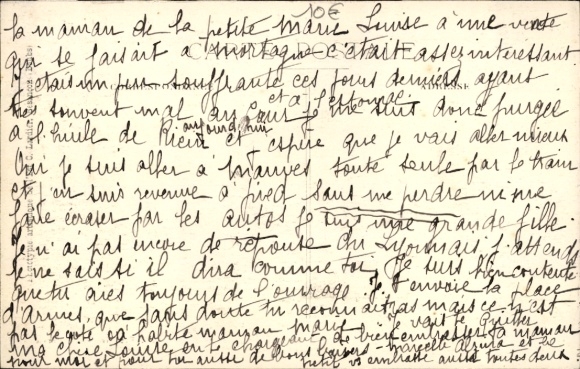 10€
la maman de la petite Marie Louise à une vente
qui se faisait à Mortagne c'était assez interessant.
J'étais un peu souffrante ces jours derniers ayant
très souvent mal au cœur et à l'estomac je me suis donc purgée
à l'huile de Ricin aujourd'hui et espère que je vais aller mieux
suis aller à Mauves toute seule par le train
et j'en suis revenue à pied sans me perdre ni me
faire écraser par les autos je suis une grande fille
Je n'ai pas encore de réponse du Lyonnais j'attends
je ne sais si il dira comme toi. Je suis bien contente
que tu aies toujours de l'ouvrage. Je t'envoie la place
d'Armes, que sans doute tu reconnaitras mais ce n'est
pas le coté où habite maman Marie. Je vais te quitter
ma chère Louise en te chargeant de bien embrasser ta maman
pour moi et pour toi aussi de bons baisers
embrasse aussi toutes deux